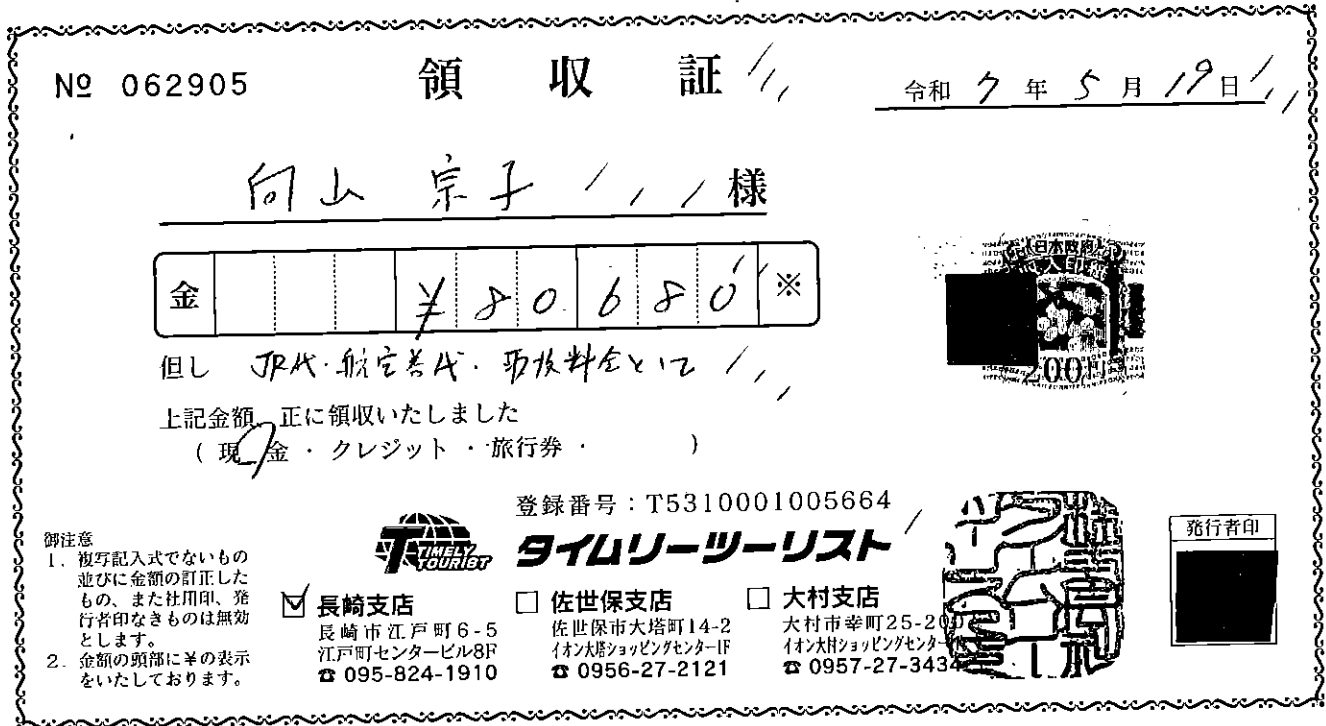 № 062905
領収証
令和 7 年 5 月 19 日
向山 宗子 様
金 ¥80,680 ※
但し JR代・航空券代・取扱料金として
上記金額、正に領収いたしました
( 現金 ・ クレジット ・ 旅行券 ・ )
日本政府
収入印紙
200円
登録番号:T5310001005664
TIMELY
TOURIST
タイムリーツーリスト
発行者印
御注意
1. 複写記入式でないもの
並びに金額の訂正した
もの、また社用印、発
行者印なきものは無効
とします。
2. 金額の頭部に¥の表示
をいたしております。
☑ 長崎支店
長崎市江戸町6-5
江戸町センタービル8F
☎ 095-824-1910
□ 佐世保支店
佐世保市大塔町14-2
イオン大塔ショッピングセンター1F
☎ 0956-27-2121
□ 大村支店
大村市幸町25-200
イオン大村ショッピングセンター
☎ 0957-27-3434